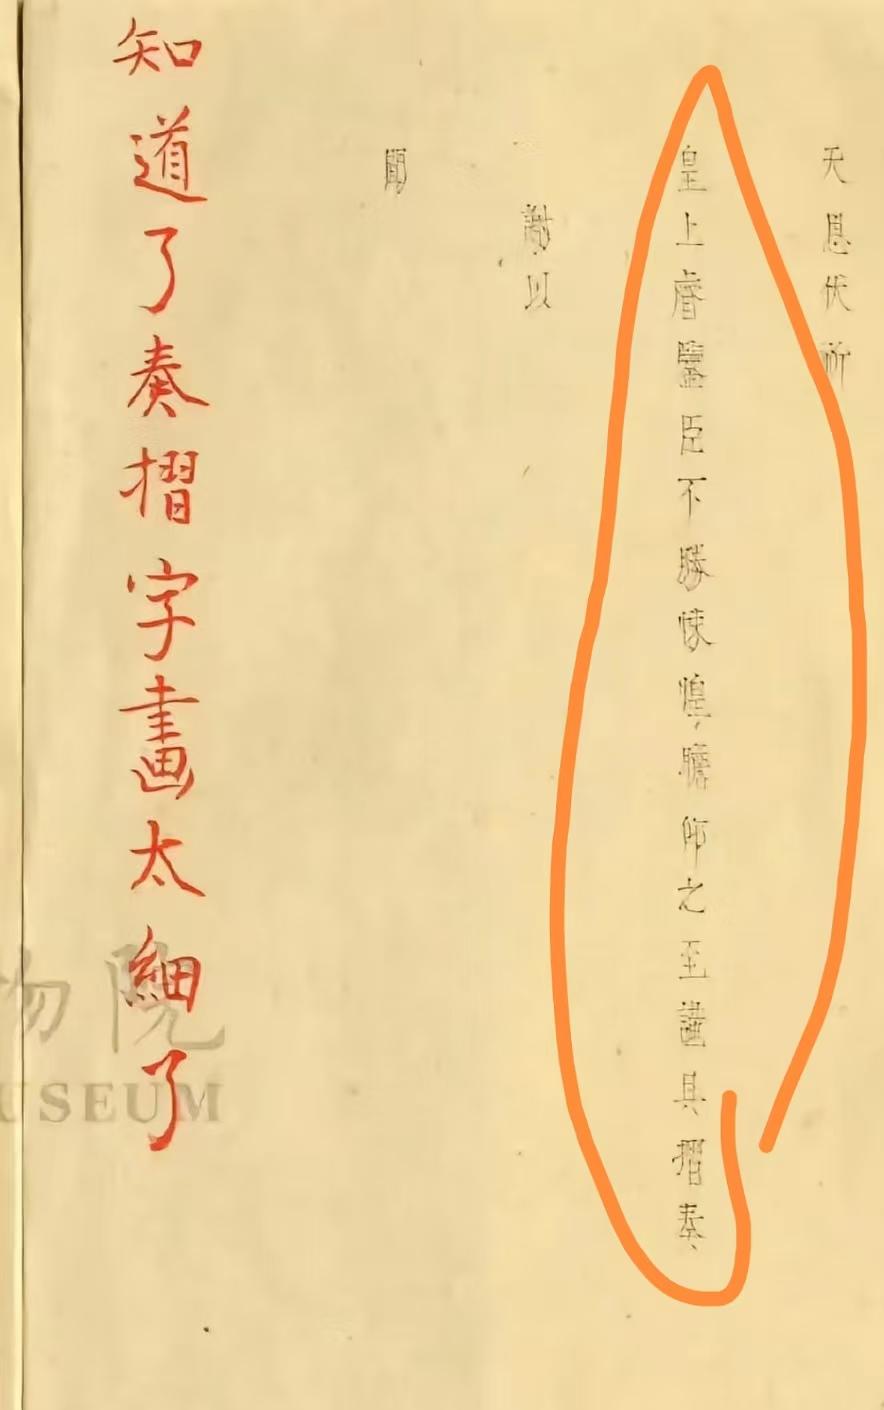 天恩伏祈
皇上睿鑒臣不勝悚惶瞻仰之至謹具摺奏
謝以
聞
知道了奏摺字畫太細了
物院
USEUM